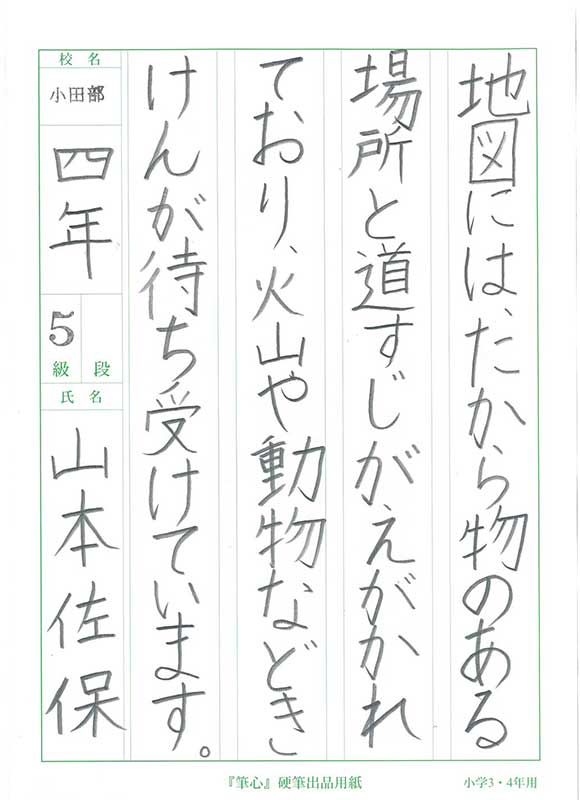 地図には、たから物のある
場所と道すじがえがかれ
ており、火山や動物などき
けんが待ち受けています。
校名
小田部
四年
5
級 段
氏名
山本佐保
『筆心』硬筆出品用紙
小学3・4年用